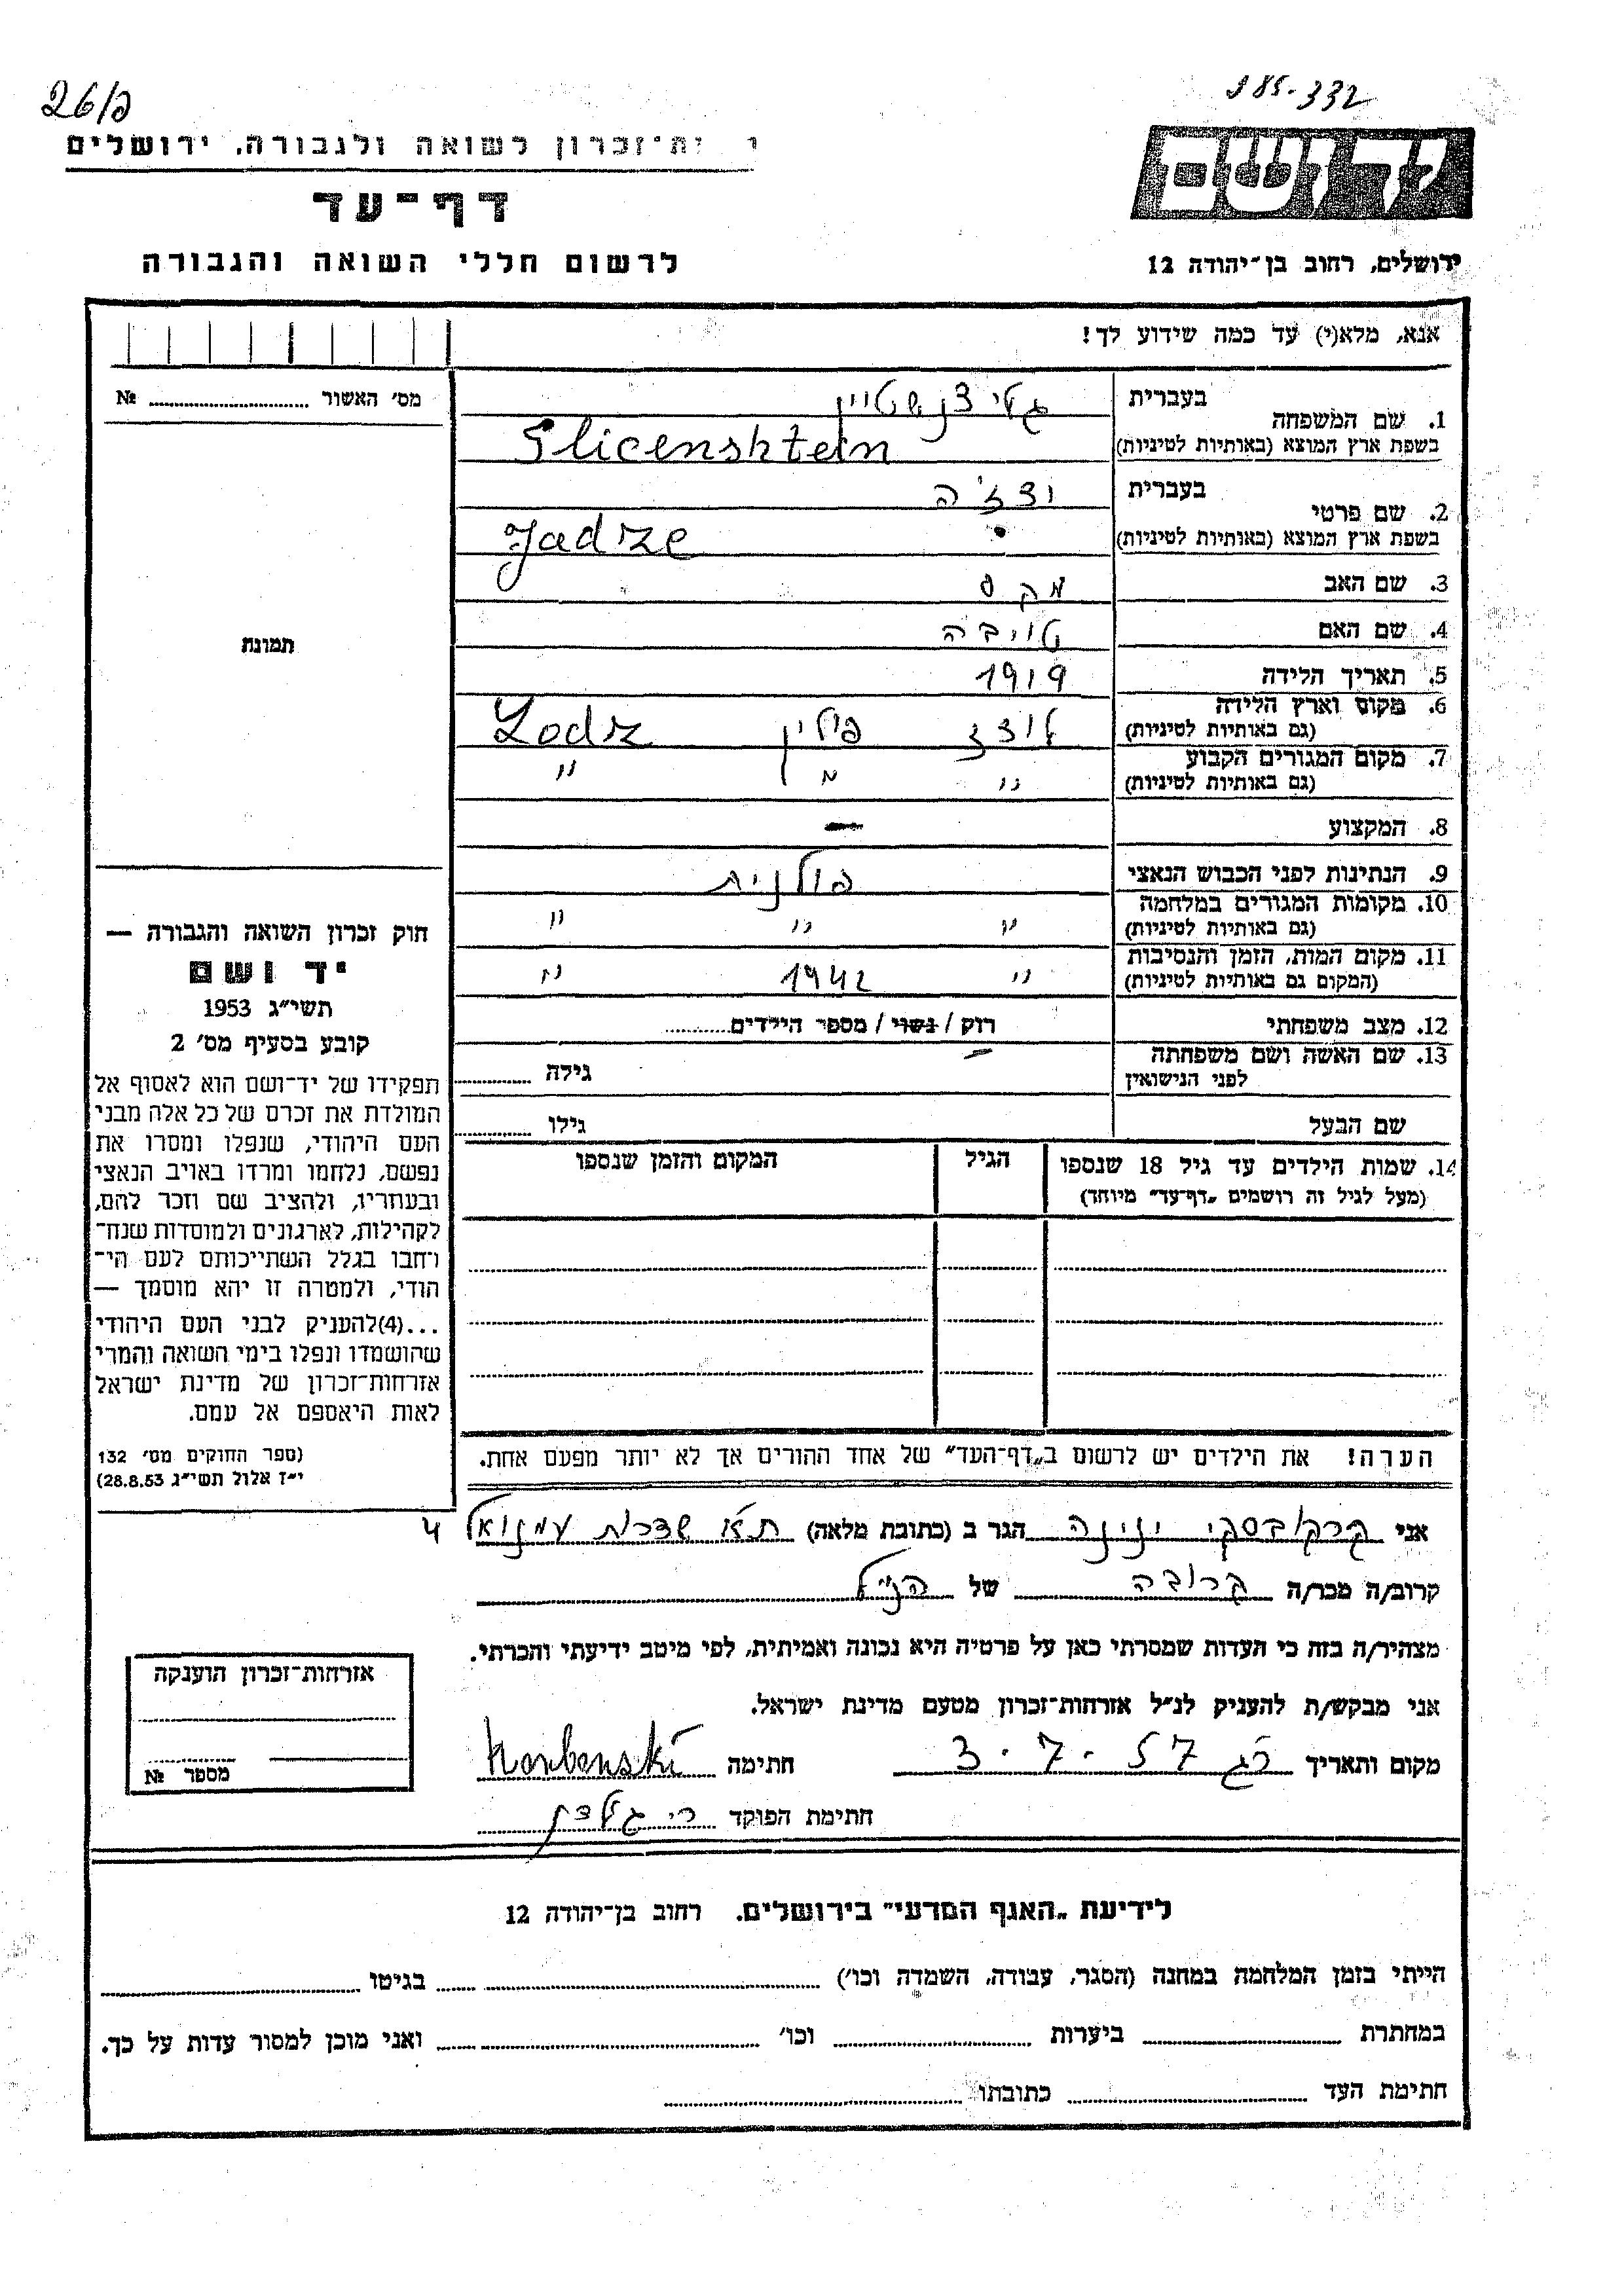 985-332
26/פ
יד ושם
ירושלים, רחוב בן־יהודה 12
י זת־זכרון לשואה ולגבורה, ירושלים
דף־עד
לרשום חללי השואה והגבורה
אנא, מלא(י) עד כמה שידוע לך!
מס׳ האשור № 
1. שם המשפחה
בעברית גליצנשטיין
בשפת ארץ המוצא (באותיות לטיניות) Glicenshtein
2. שם פרטי
בעברית ידז׳ה
בשפת ארץ המוצא (באותיות לטיניות) Jadze
3. שם האב מקס
4. שם האם טויבה
5. תאריך הלידה 1919
6. מקום וארץ הלידה לודז פולין Lodz
(גם באותיות לטיניות)
7. מקום המגורים הקבוע
(גם באותיות לטיניות) " " "
8. המקצוע —
9. הנתינות לפני הכבוש הנאצי פולנית
10. מקומות המגורים במלחמה
(גם באותיות לטיניות) " " "
11. מקום המות, הזמן והנסיבות
(המקום גם באותיות לטיניות) " 1942 "
12. מצב משפחתי רוק / נשוי / מספר הילדים
13. שם האשה ושם משפחתה
לפני הנישואין — גילה
שם הבעל גילו
14. שמות הילדים עד גיל 18 שנספו
(מעל לגיל זה רושמים „דף־עד" מיוחד)
הגיל
המקום והזמן שנספו
הערה! את הילדים יש לרשום ב„דף־העד" של אחד ההורים אך לא יותר מפעם אחת.
תמונת
חוק זכרון השואה והגבורה —
יד ושם
תשי״ג 1953
קובע בסעיף מס׳ 2
תפקידו של יד־ושם הוא לאסוף אל
המולדת את זכרם של כל אלה מבני
העם היהודי, שנפלו ומסרו את
נפשם, נלחמו ומרדו באויב הנאצי
ובעוזריו, ולהציב שם וזכר להם,
לקהילות, לארגונים ולמוסדות שנח־
רחבו בגלל השתייכותם לעם הי־
הודי, ולמטרה זו יהא מוסמך —
...(4)להעניק לבני העם היהודי
שהושמדו ונפלו בימי השואה והמרי
אזרחות־זכרון של מדינת ישראל
לאות היאספם אל עמם.
(ספר החוקים מס׳ 132
י״ז אלול תשי״ג 28.8.53)
אני קרקובסקי ינינה הגר ב (כתובת מלאה) ת״א שדרות עמנואל 4
קרוב/ה מכר/ה קרובה של הנ״ל
מצהיר/ה בזה כי העדות שמסרתי כאן על פרטיה היא נכונה ואמיתית, לפי מיטב ידיעתי והכרתי.
אני מבקש/ת להעניק לנ״ל אזרחות־זכרון מטעם מדינת ישראל.
מקום ותאריך רג 3.7.57 חתימה
חתימת הפוקד
אזרחות־זכרון הוענקה
מספר №
לידיעת „האגף המדעי" בירושלים. רחוב בן־יהודה 12
הייתי בזמן המלחמה במחנה (הסגר, עבודה, השמדה וכו׳) בגיטו
במחתרת ביערות וכו׳ ואני מוכן למסור עדות על כך.
חתימת העד כתובתו